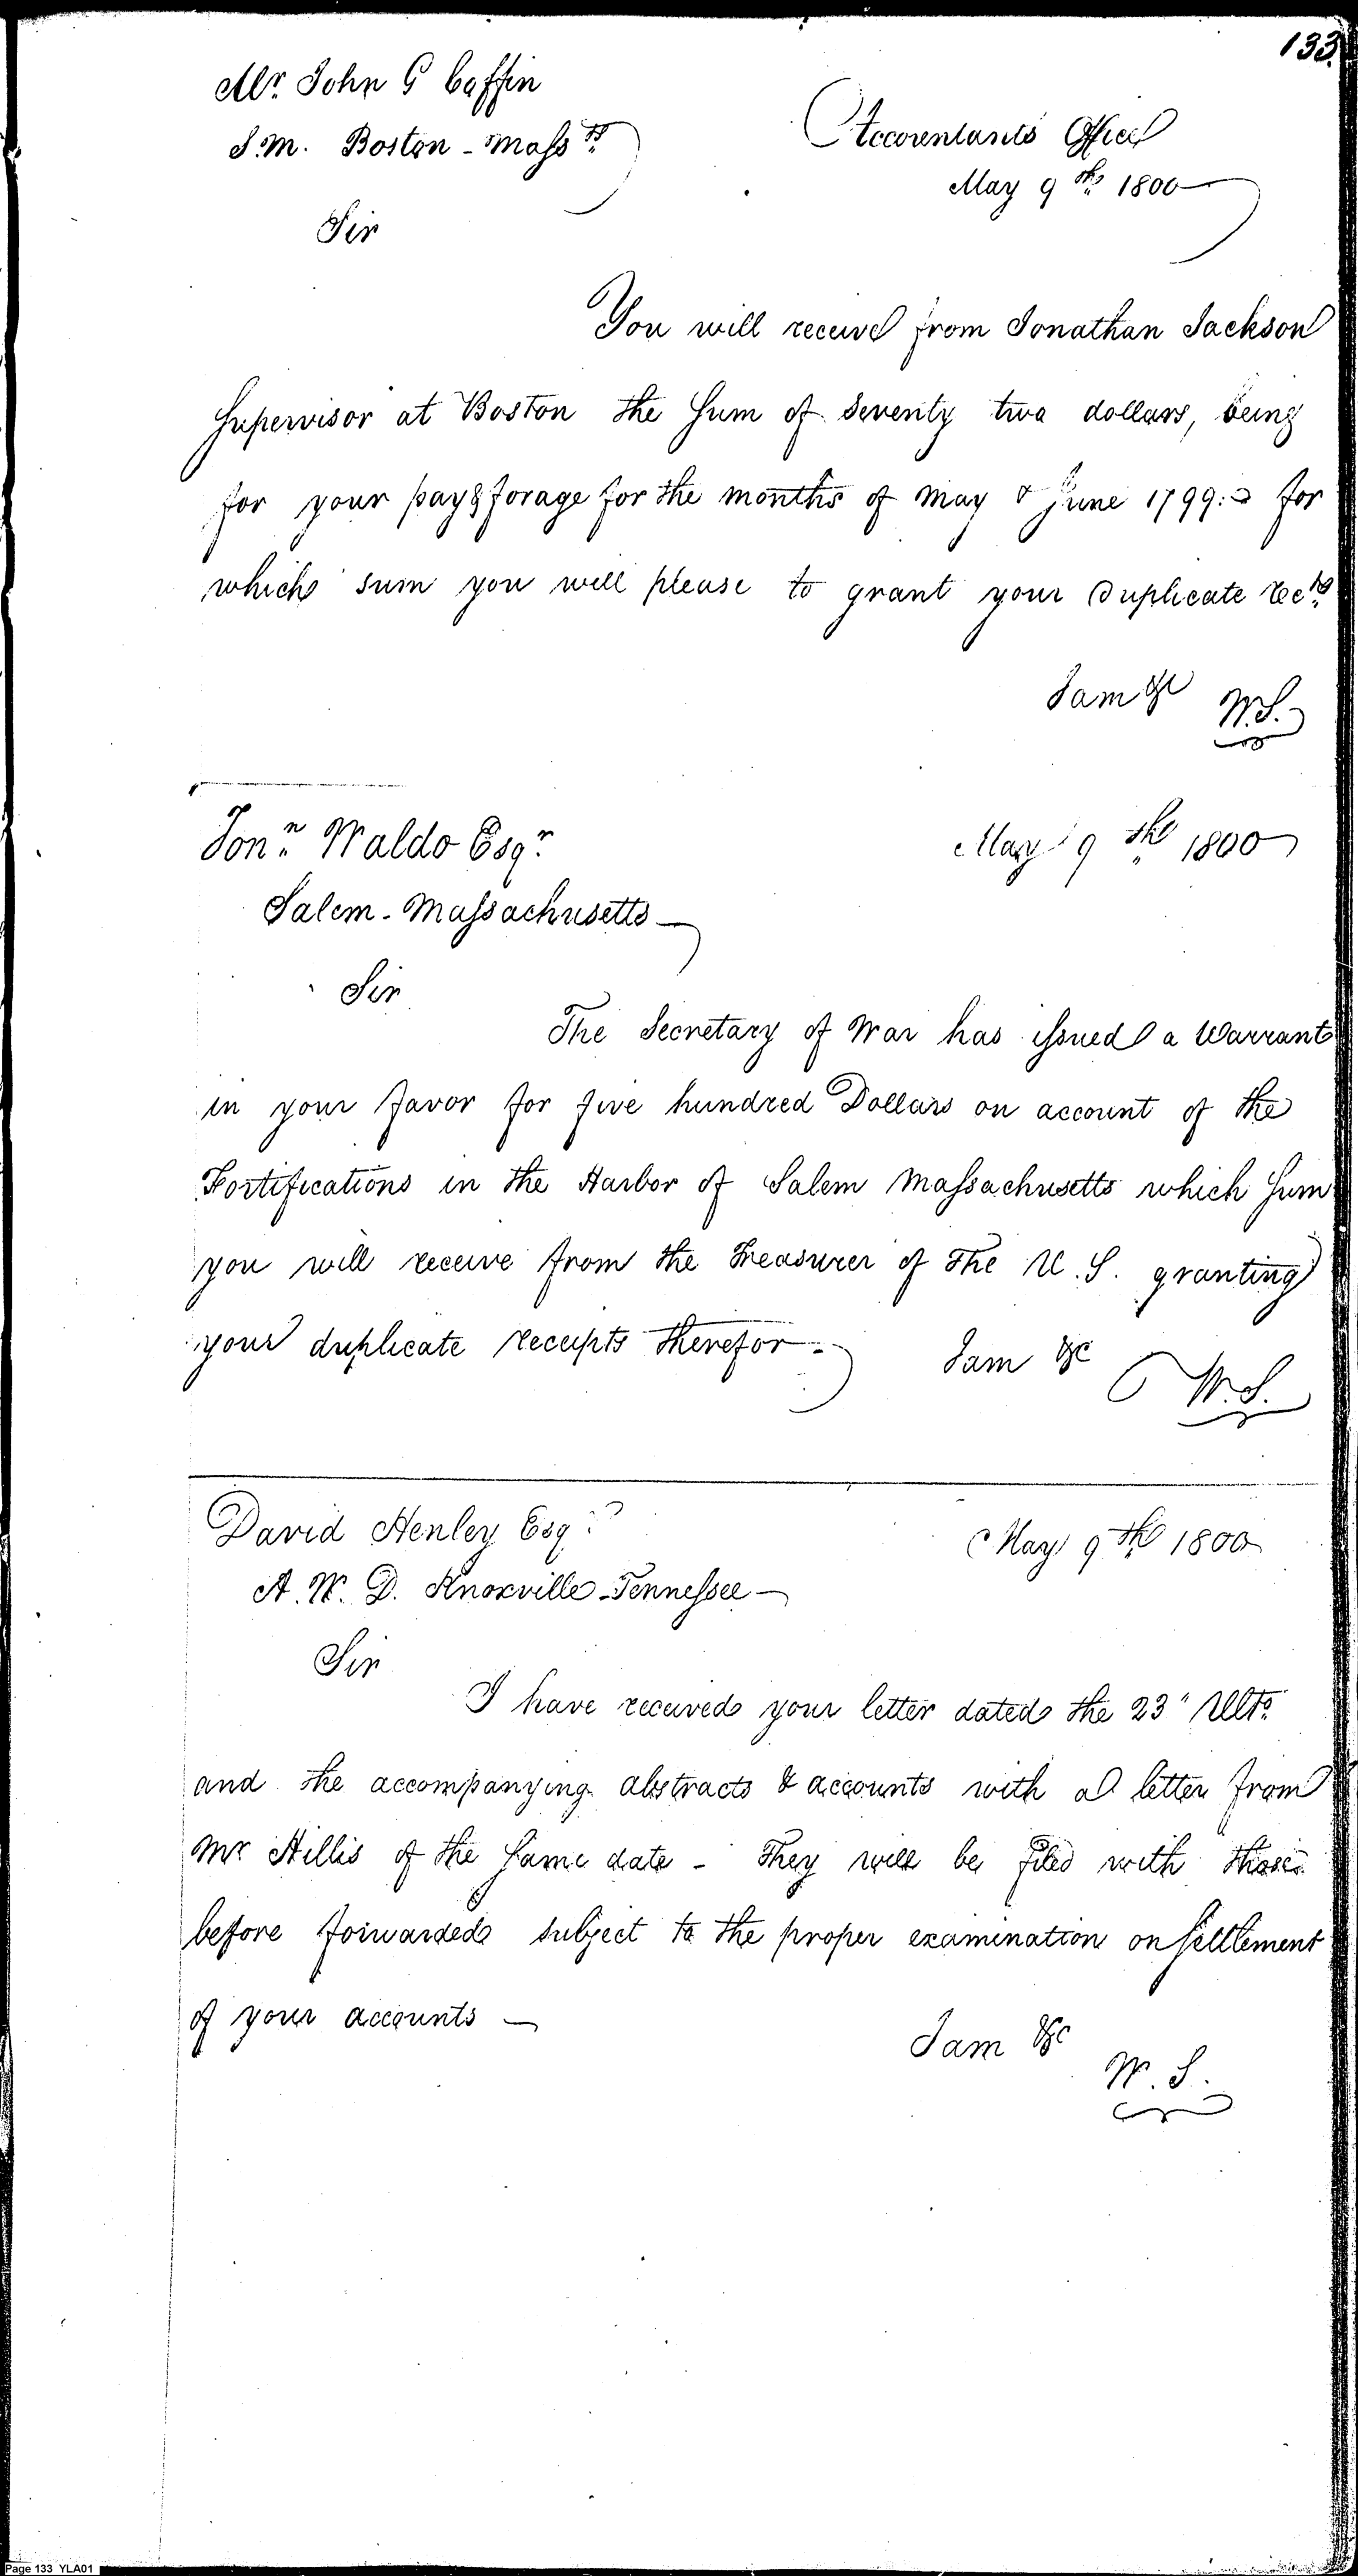 133.
Mr. John G Coffin
S.M. Boston - Massts.
Accountants Office
May 9th 1800
Sir
You will receive from Jonathan Jackson
Supervisor at Boston the Sum of seventy two dollars, being
for your pay & forage for the months of May & June 1799: for
which sum you will please to grant your duplicate Rects.
I am &c
W.S.
Jonn. Waldo Esqr.
May 9th 1800
Salem - Massachusetts
Sir
The Secretary of War has issued a Warrant
in your favor for five hundred Dollars on account of the
Fortifications in the Harbor of Salem Massachusetts which Sum
you will receive from the Treasurer of the U.S. granting
your duplicate receipts therefor -
I am &c
W.S.
David Henley Esqr.
May 9th 1800
A.W.D. Knoxville - Tennessee -
Sir
I have received your letter dated the 23" Ulto.
and the accompanying abstracts & accounts with a letter from
Mr Hillis of the Same date - They will be filed with those
before forwarded subject to the proper examination on Settlement
of your accounts -
I am &c
W.S.
Page 133 YLA01